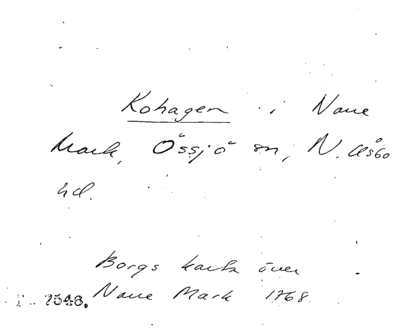 Kohagen i Nane
Mark, Össjö sn, N. Åsbo
hd.
Borgs karta över
7548. Nane Mark 1768